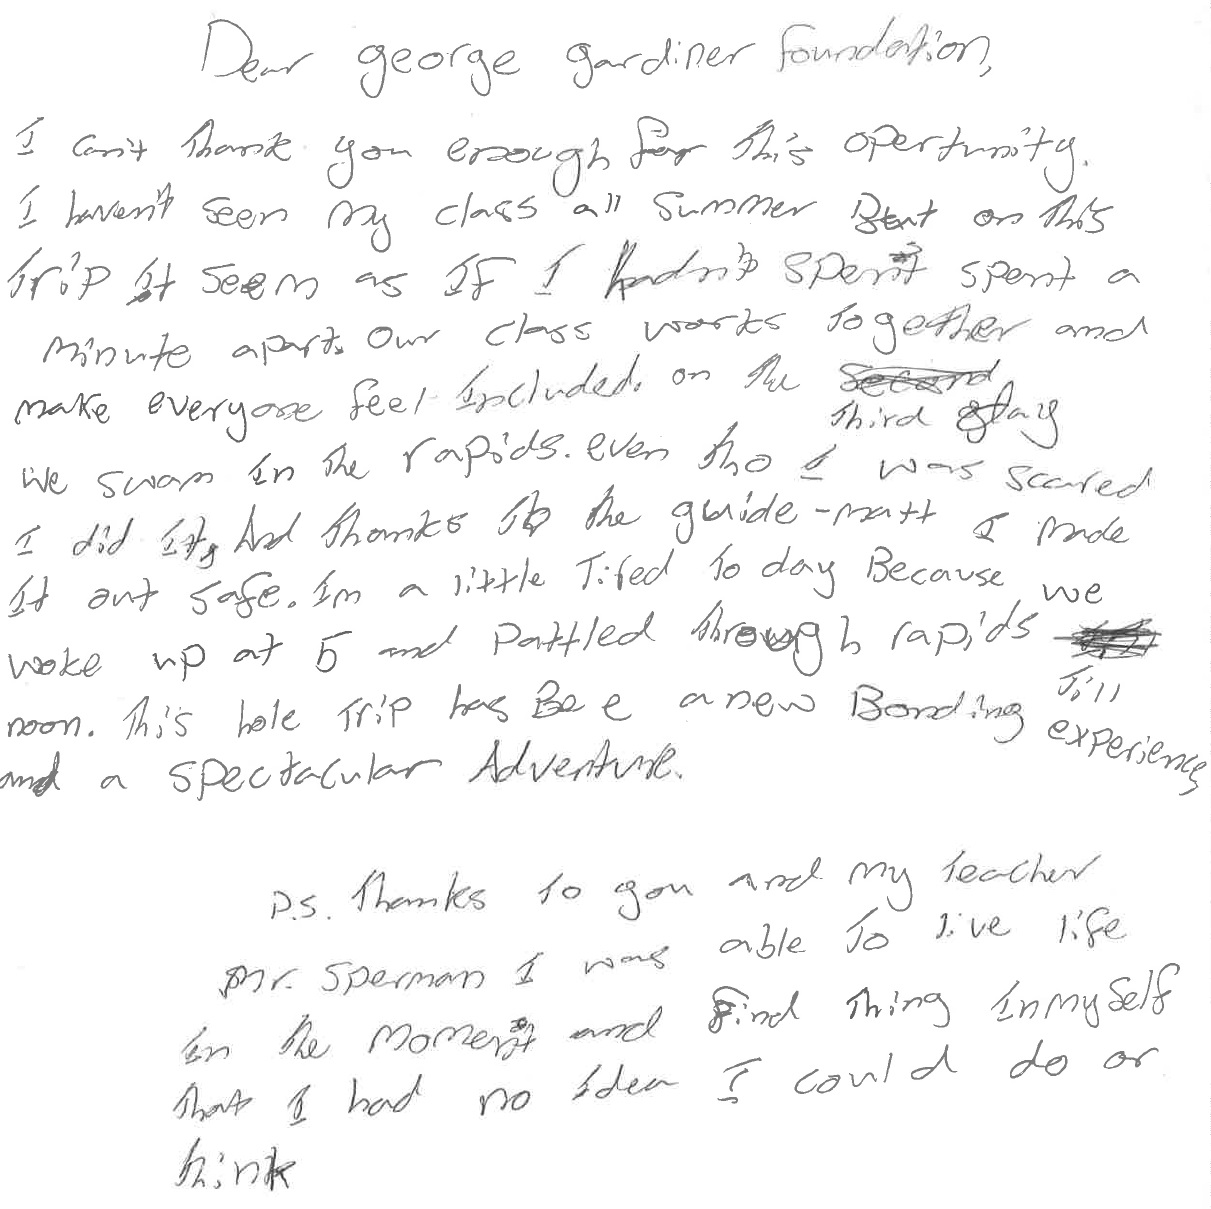 Dear george gardiner foundation,
I can't thank you enough for this opertunity.
I haven't seen my class all summer But on this
trip it seem as IF I hadn't spent spent a
minute apart. Our class works together and
make everyone feel included. on the
third day
we swam in the rapids. even tho I was scared
I did it, And thanks to the guide-matt I made
It out safe. Im a little Tired to day Because we
woke up at 5 and Pattled through rapids
Till
noon. This hole Trip has Bee a new Bonding experience
and a spectacular Adventure.
P.S. Thanks to you and my teacher
Mr. Sperman I was able to live life
In the moment and Find thing In my self
that I had no Idea I could do or
think